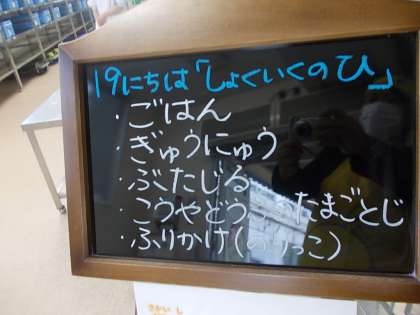 19にちは「しょくいくのひ」
・ごはん
・ぎゅうにゅう
・ぶたじる
・こうやどう たまごとじ
・ふりかけ(のりっこ)